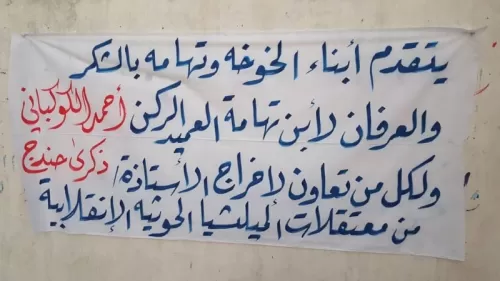 يتقدم أبناء الخوخه وتهامه بالشكر
والعرفان لأبن تهامة العميد الركن أحمد الكوكباني
ولكل من تعاون لاخراج الأستاذة/ ذكرى حندج
من معتقلات الميلشيا الحوثيه الإنقلابية